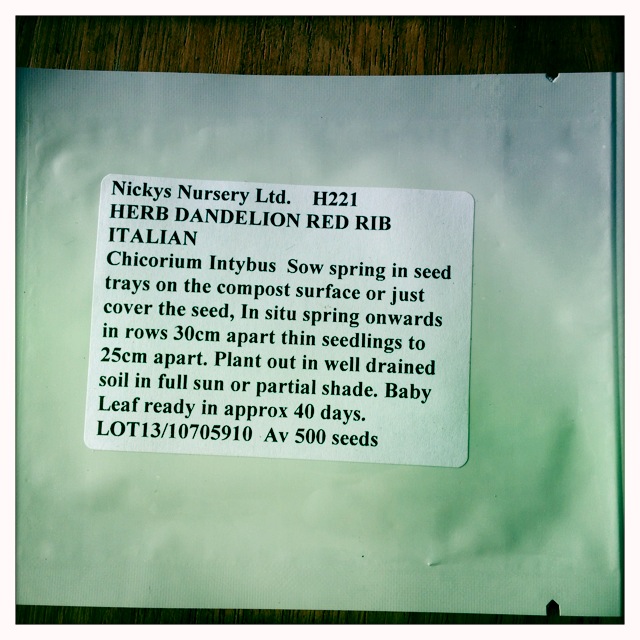 Nickys Nursery Ltd. H221
HERB DANDELION RED RIB
ITALIAN
Chicorium Intybus Sow spring in seed
trays on the compost surface or just
cover the seed, In situ spring onwards
in rows 30cm apart thin seedlings to
25cm apart. Plant out in well drained
soil in full sun or partial shade. Baby
Leaf ready in approx 40 days.
LOT13/10705910 Av 500 seeds